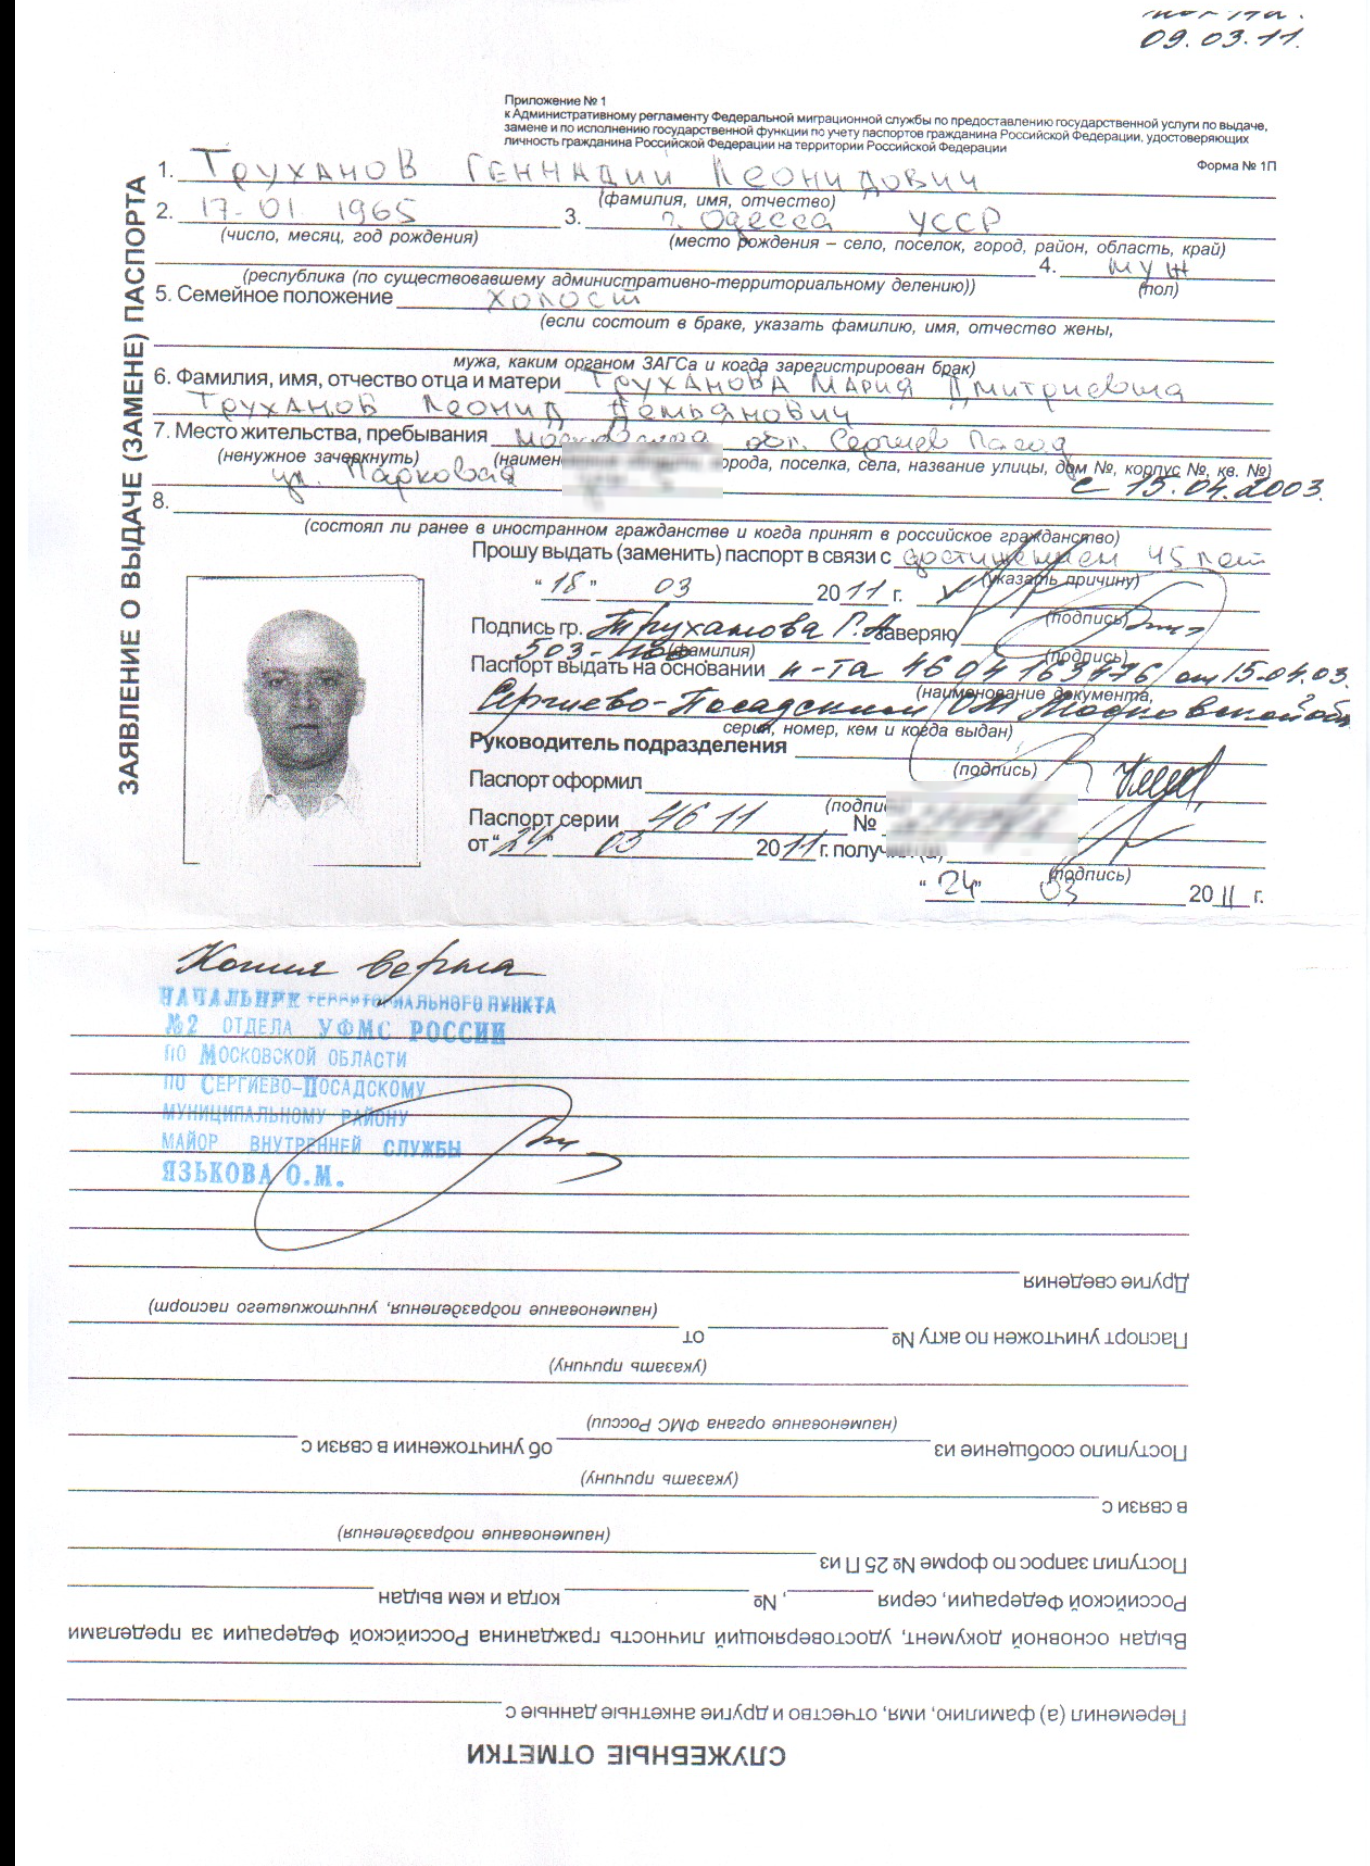 09.03.11.
Приложение № 1
к Административному регламенту Федеральной миграционной службы по предоставлению государственной услуги по выдаче,
замене и по исполнению государственной функции по учету паспортов гражданина Российской Федерации, удостоверяющих
личность гражданина Российской Федерации на территории Российской Федерации
Форма № 1П
ЗАЯВЛЕНИЕ О ВЫДАЧЕ (ЗАМЕНЕ) ПАСПОРТА
1. Труханов Геннадий Леонидович
(фамилия, имя, отчество)
2. 17-01 1965 3. г. Одесса УССР
(число, месяц, год рождения) (место рождения – село, поселок, город, район, область, край)
4. муж
(республика (по существовавшему административно-территориальному делению)) (пол)
5. Семейное положение холост
(если состоит в браке, указать фамилию, имя, отчество жены,
мужа, каким органом ЗАГСа и когда зарегистрирован брак)
6. Фамилия, имя, отчество отца и матери Труханова Мария Дмитриевна
Труханов Леонид Демьянович
7. Место жительства, пребывания Московская обл. Сергиев Посад
(ненужное зачеркнуть) (наимен города, поселка, села, название улицы, дом №, корпус №, кв. №)
ул. Парковая с 15.04.2003.
8.
(состоял ли ранее в иностранном гражданстве и когда принят в российское гражданство)
Прошу выдать (заменить) паспорт в связи с достижением 45 лет
(указать причину)
“18” 03 2011 г.
(подпись)
Подпись гр. Труханова Г.Л. заверяю
503-
(фамилия) (подпись)
Паспорт выдать на основании п-та 46 04 163476 от 15.04.03.
(наименование документа,
Сергиево-Посадским ОМ Московской обл.
серия, номер, кем и когда выдан)
Руководитель подразделения
(подпись)
Паспорт оформил
(подпи
Паспорт серии 46 11 №
от “24” 03 2011 г. получ
(подпись)
“24” 03 2011 г.
Копия верна
НАЧАЛЬНИК ТЕРРИТОРИАЛЬНОГО ПУНКТА
№2 ОТДЕЛА УФМС РОССИИ
ПО МОСКОВСКОЙ ОБЛАСТИ
ПО СЕРГИЕВО-ПОСАДСКОМУ
МУНИЦИПАЛЬНОМУ РАЙОНУ
МАЙОР ВНУТРЕННЕЙ СЛУЖБЫ
ЯЗЬКОВА О.М.
СЛУЖЕБНЫЕ ОТМЕТКИ
Переменил (а) фамилию, имя, отчество и другие анкетные данные с
Выдан основной документ, удостоверяющий личность гражданина Российской Федерации за пределами
Российской Федерации, серия , № когда и кем выдан
Поступил запрос по форме № 25 П из
(наименование подразделения)
в связи с
(указать причину)
Поступило сообщение из об уничтожении в связи с
(наименование органа ФМС России)
(указать причину)
Паспорт уничтожен по акту № от
(наименование подразделения, уничтожившего паспорт)
Другие сведения